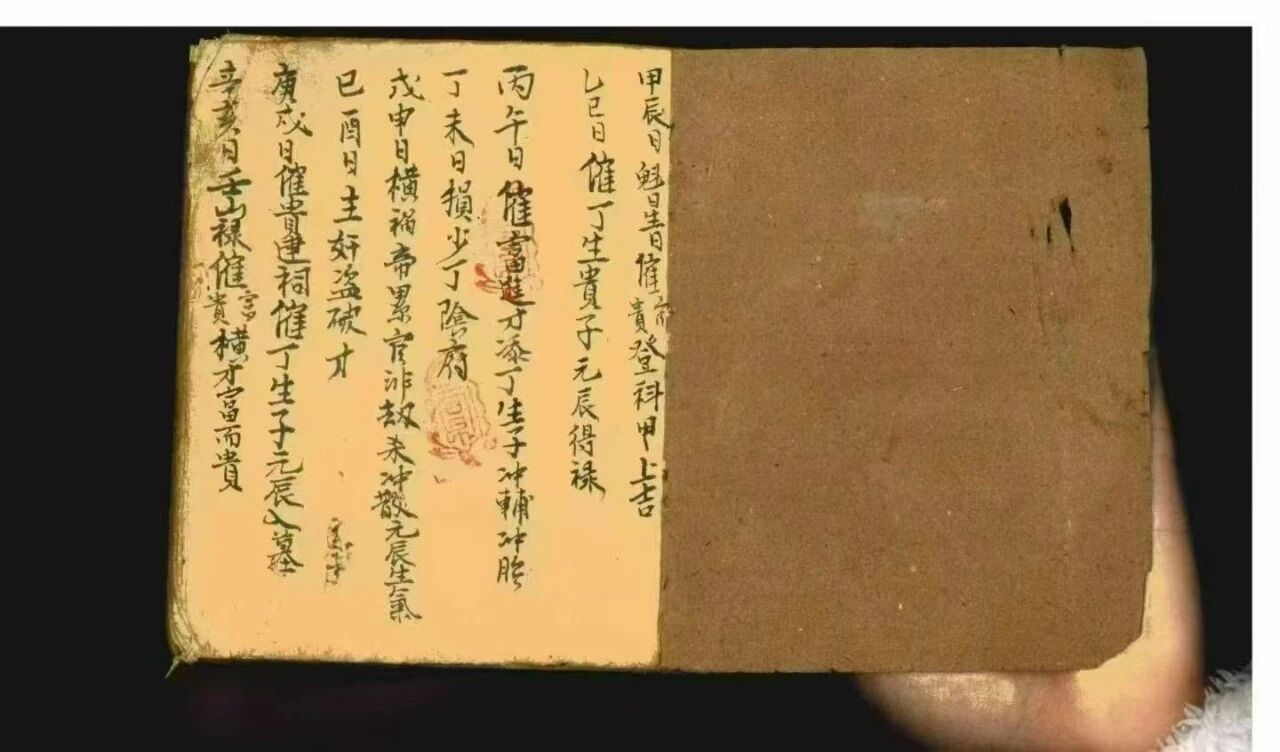 甲辰日魁日催官貴登科甲上吉
乙巳日催丁生貴子元辰得禄
丙午日催富進才添丁生子冲輔冲胎
丁未日損少丁陰府
戊申日横禍帝累官非劫未冲散元辰生氣
巳酉日主奸盗破才
庚戌日催貴建祠催丁生子元辰入墓
辛亥日壬山禄催富貴横才富而貴